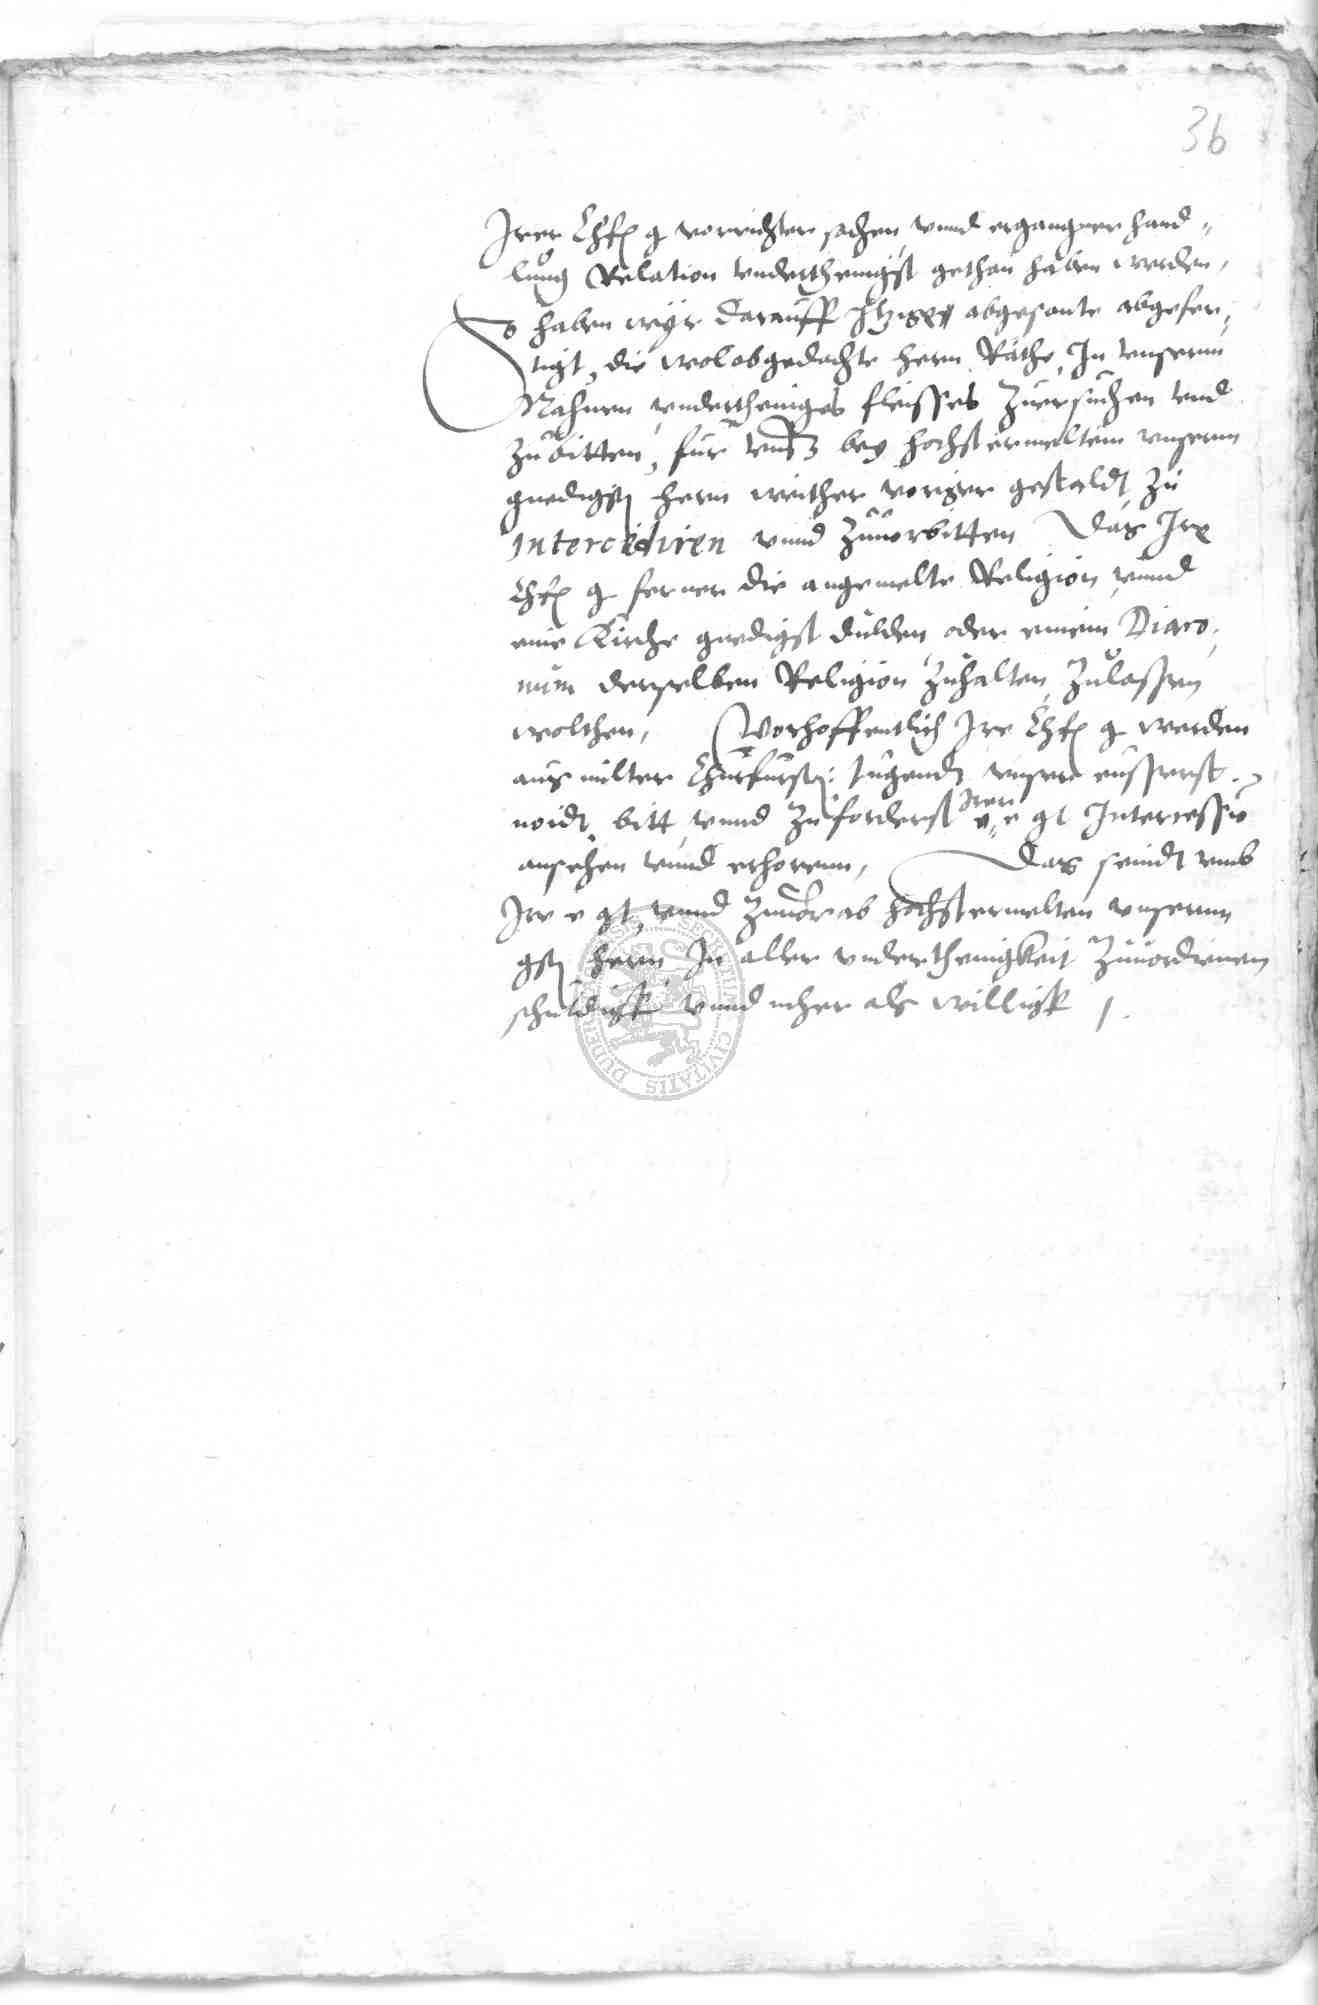 36
Irer Chf g vorrichter sachen, vnnd ergangner hand-
lung Relation vnderthenigst gethan haben werden,
So haben wyr darauff Itzige abgesante abgefer-
tigt, die wolobgedachte hern Räthe, In vnserm
Nahmen vndertheniges fleisses Zuersuchen vnd
Zubitten, fur vnß bey hochstermeltem vnserm
gnedigst hern weither voriger gestaldt zu
Intercediren vnnd Zuuorbitten Das Ire
Chf g ferner die angemelte Religion vnnd
eine Kirche gnedigst dulden oder einem Diaco-
num derselben Religion Zuhalten, Zulassen
wolthen, Vorhoffentlich Ire Chf g werden
aus milter Churfurst: tugendt vnser eusserst
noidt bitt vnnd Zuforderst Irer e gt Intercessio
ansehen vnnd erhorenn, Das seindt vmb
Ire e gt, vnnd Zuuorab hochstermelten vnserm
gst hern In aller vnderthenigkeit Zuuordienen
schuldigk vnnd mher als willigk /.
SECRETUM CIVITATIS DUDER